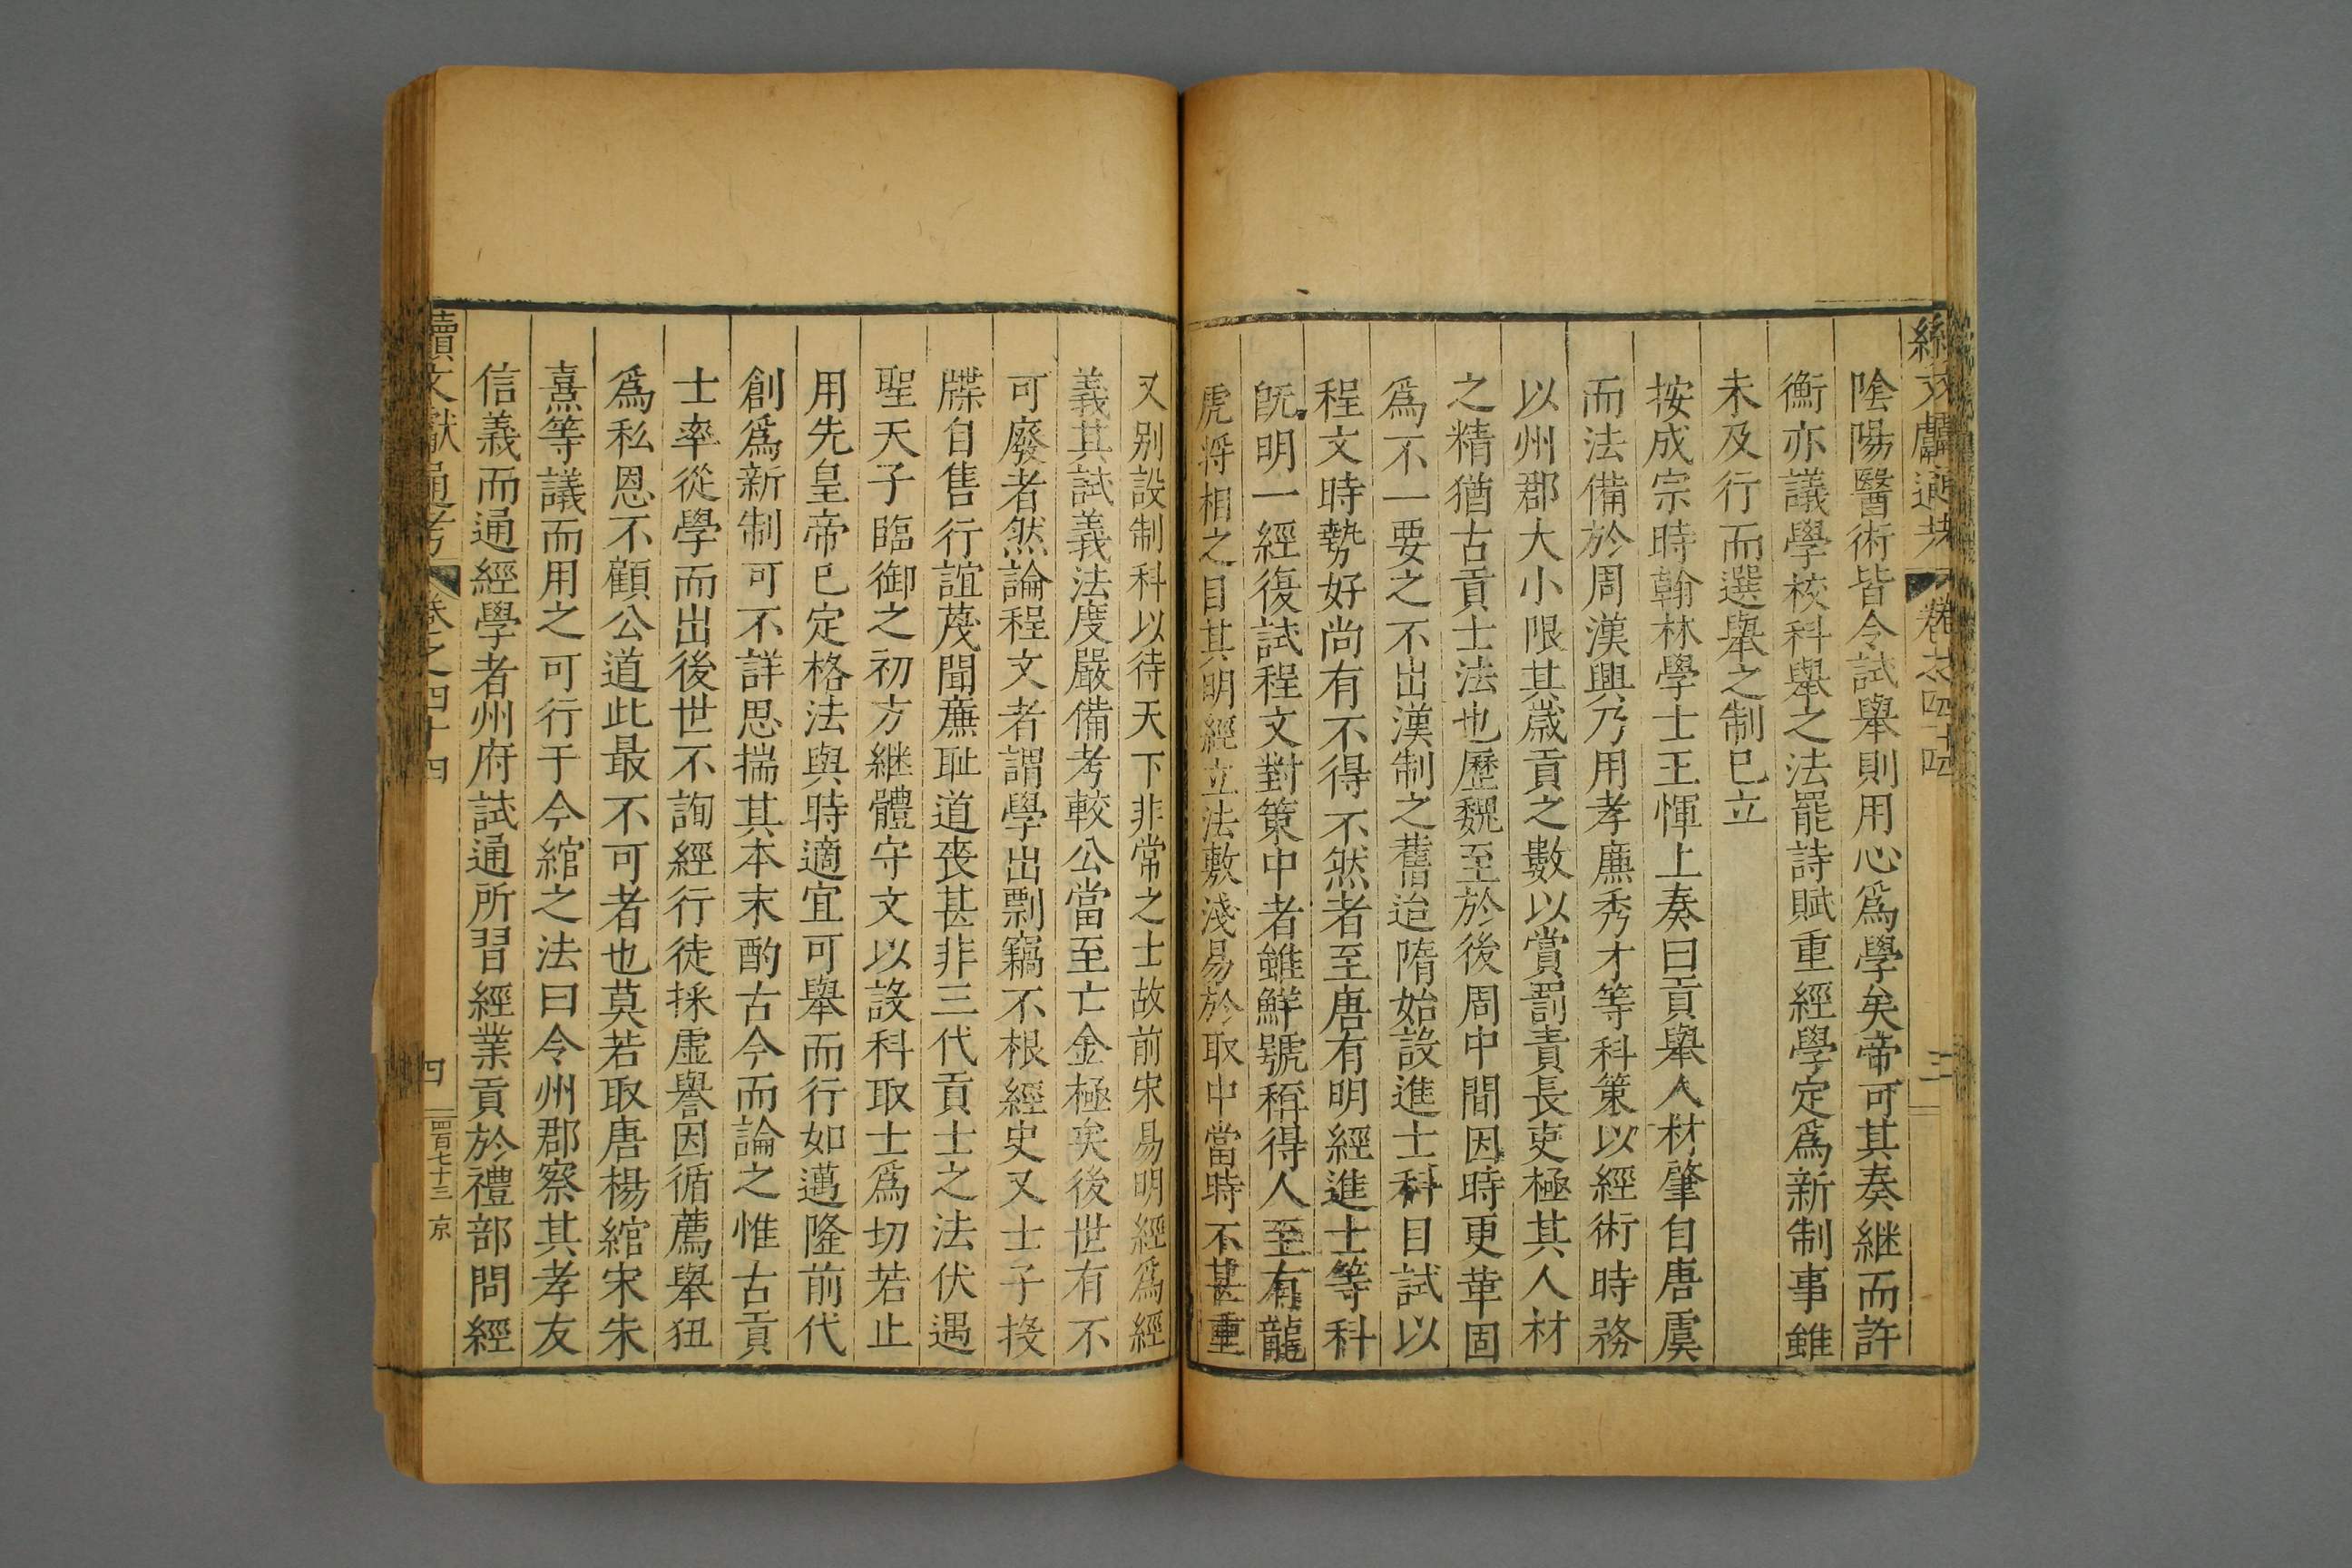 續文獻通考 卷之四十四 三
陰陽醫術皆令試舉則用心爲學矣帝可其奏繼而許
衡亦議學校科舉之法罷詩賦重經學定爲新制事雖
未及行而選舉之制已立
按成宗時翰林學士王惲上奏曰貢舉人材肇自唐虞
而法備於周漢興乃用孝廉秀才等科策以經術時務
以州郡大小限其歲貢之數以賞罰責長吏極其人材
之精猶古貢士法也歷魏至於後周中間因時更革固
爲不一要之不出漢制之舊迨隋始設進士科目試以
程文時勢好尚有不得不然者至唐有明經進士等科
旣明一經復試程文對策中者雖鮮號稱得人至有龍
虎將相之目其明經立法敷淺易於取中當時不甚重
又別設制科以待天下非常之士故前宋易明經爲經
義其試義法度嚴備考較公當至亡金極矣後世有不
可廢者然論程文者謂學出剽竊不根經史又士子投
牒自售行誼蔑聞廉耻道喪甚非三代貢士之法伏遇
聖天子臨御之初方繼體守文以設科取士爲切若止
用先皇帝已定格法與時適宜可舉而行如邁隆前代
創爲新制可不詳思揣其本末酌古今而論之惟古貢
士率從學而出後世不詢經行徒採虛譽因循薦舉狃
爲私恩不顧公道此最不可者也莫若取唐楊綰宋朱
熹等議而用之可行于今綰之法曰令州郡察其孝友
信義而通經學者州府試通所習經業貢於禮部問經
續文獻通考 卷之四十四 四 一百七十三 京